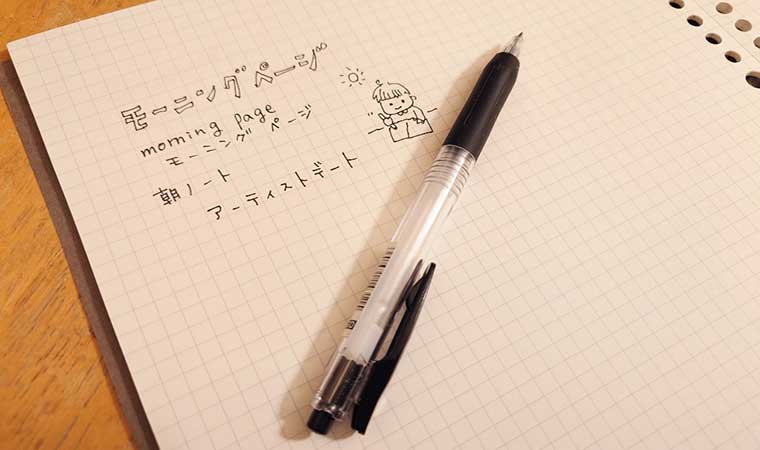 モーニングページ
morning page
モーニングページ
朝ノート
アーティストデート